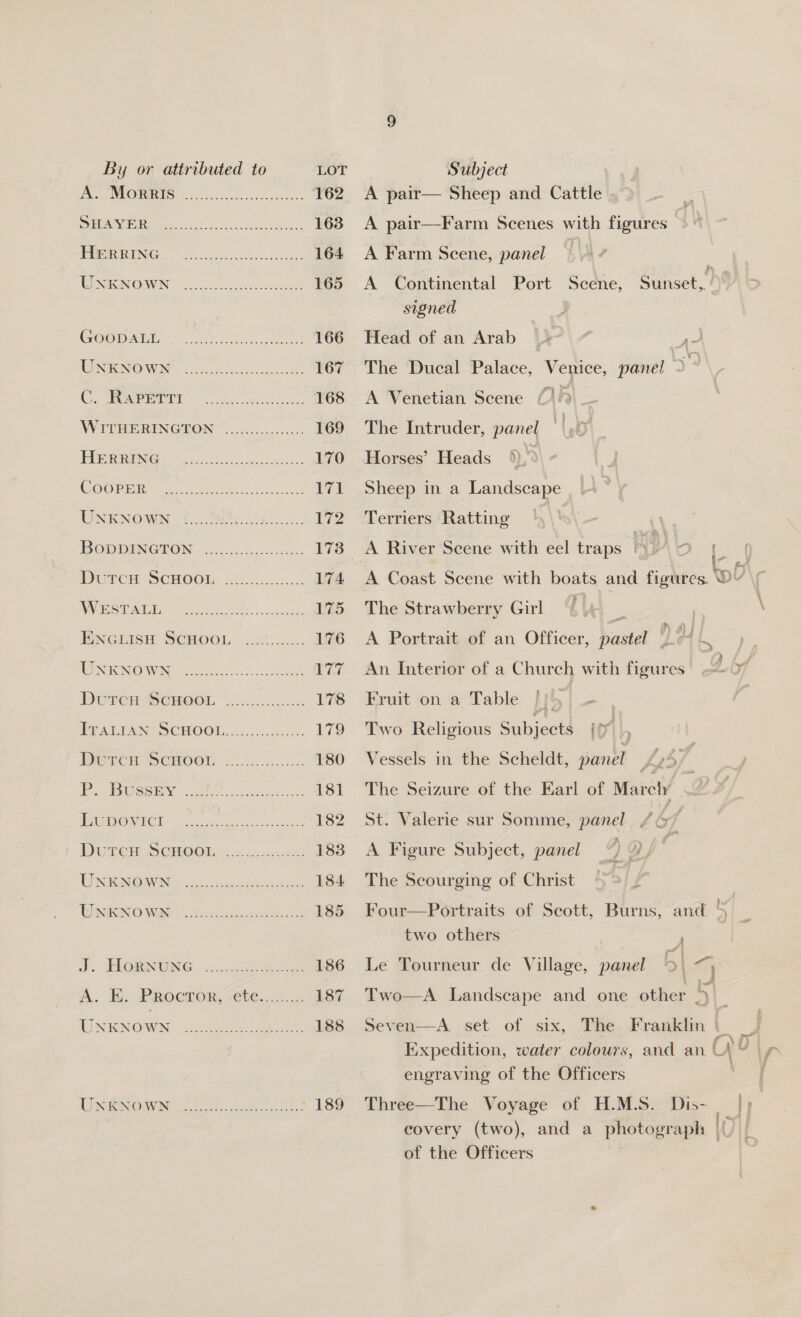 9
By or attributed to LOT Subject
A. MORRIS ........................ 162 A pair— Sheep and Cattle
SHAYER ........................ 163 A pair—Farm Scenes with figures
HERRING ........................ 164 A Farm Scene, panel
UNKNOWN ........................ 165 A Continental Port Scene, Sunset,
signed
GOODALL ........................ 166 Head of an Arab
UNKNOWN ........................ 167 The Ducal Palace, Venice, panel
C. RAPETTI ........................ 168 A Venetian Scene
WITHERINGTON ............... 169 The Intruder, panel
HERRING ........................ 170 Horses' Heads
COOPER ........................ 171 Sheep in a Landscape
UNKNOWN ........................ 172 Terriers Ratting
BODDINGTON .................. 173 A River Scene with eel traps
DUTCH SCHOOL ............... 174 A Coast Scene with boats and figures.
WESTALL ........................ 175 The Strawberry Girl
ENGLISH SCHOOL ............ 176 A Portrait of an Officer, pastel
UNKNOWN ........................ 177 An Interior of a Church with figures
DUTCH SCHOOL ............... 178 Fruit on a Table
ITALIAN SCHOOL............... 179 Two Religious Subjects
DUTCH SCHOOL ............... 180 Vessels in the Scheldt, panel
P. BUSSEY ........................ 181 The Seizure of the Earl of March
LUDOVICI ........................ 182 St. Valerie sur Somme, panel
DUTCH SCHOOL ............... 183 A Figure Subject, panel
UNKNOWN ........................ 184 The Scourging of Christ
UNKNOWN ........................ 185 Four—Portraits of Scott, Burns, and
two others
J. HORNUNG ..................... 186 Le Tourneur de Village, panel
A. E. PROCTOR, etc.......... 187 Two—A Landscape and one other
UNKNOWN ........................ 188 Seven—A set of six, The Franklin
Expedition, water colours, and an
engraving of the Officers
UNKNOWN ........................ 189 Three—The Voyage of H.M.S. Dis-
covery (two), and a photograph
of the Officers